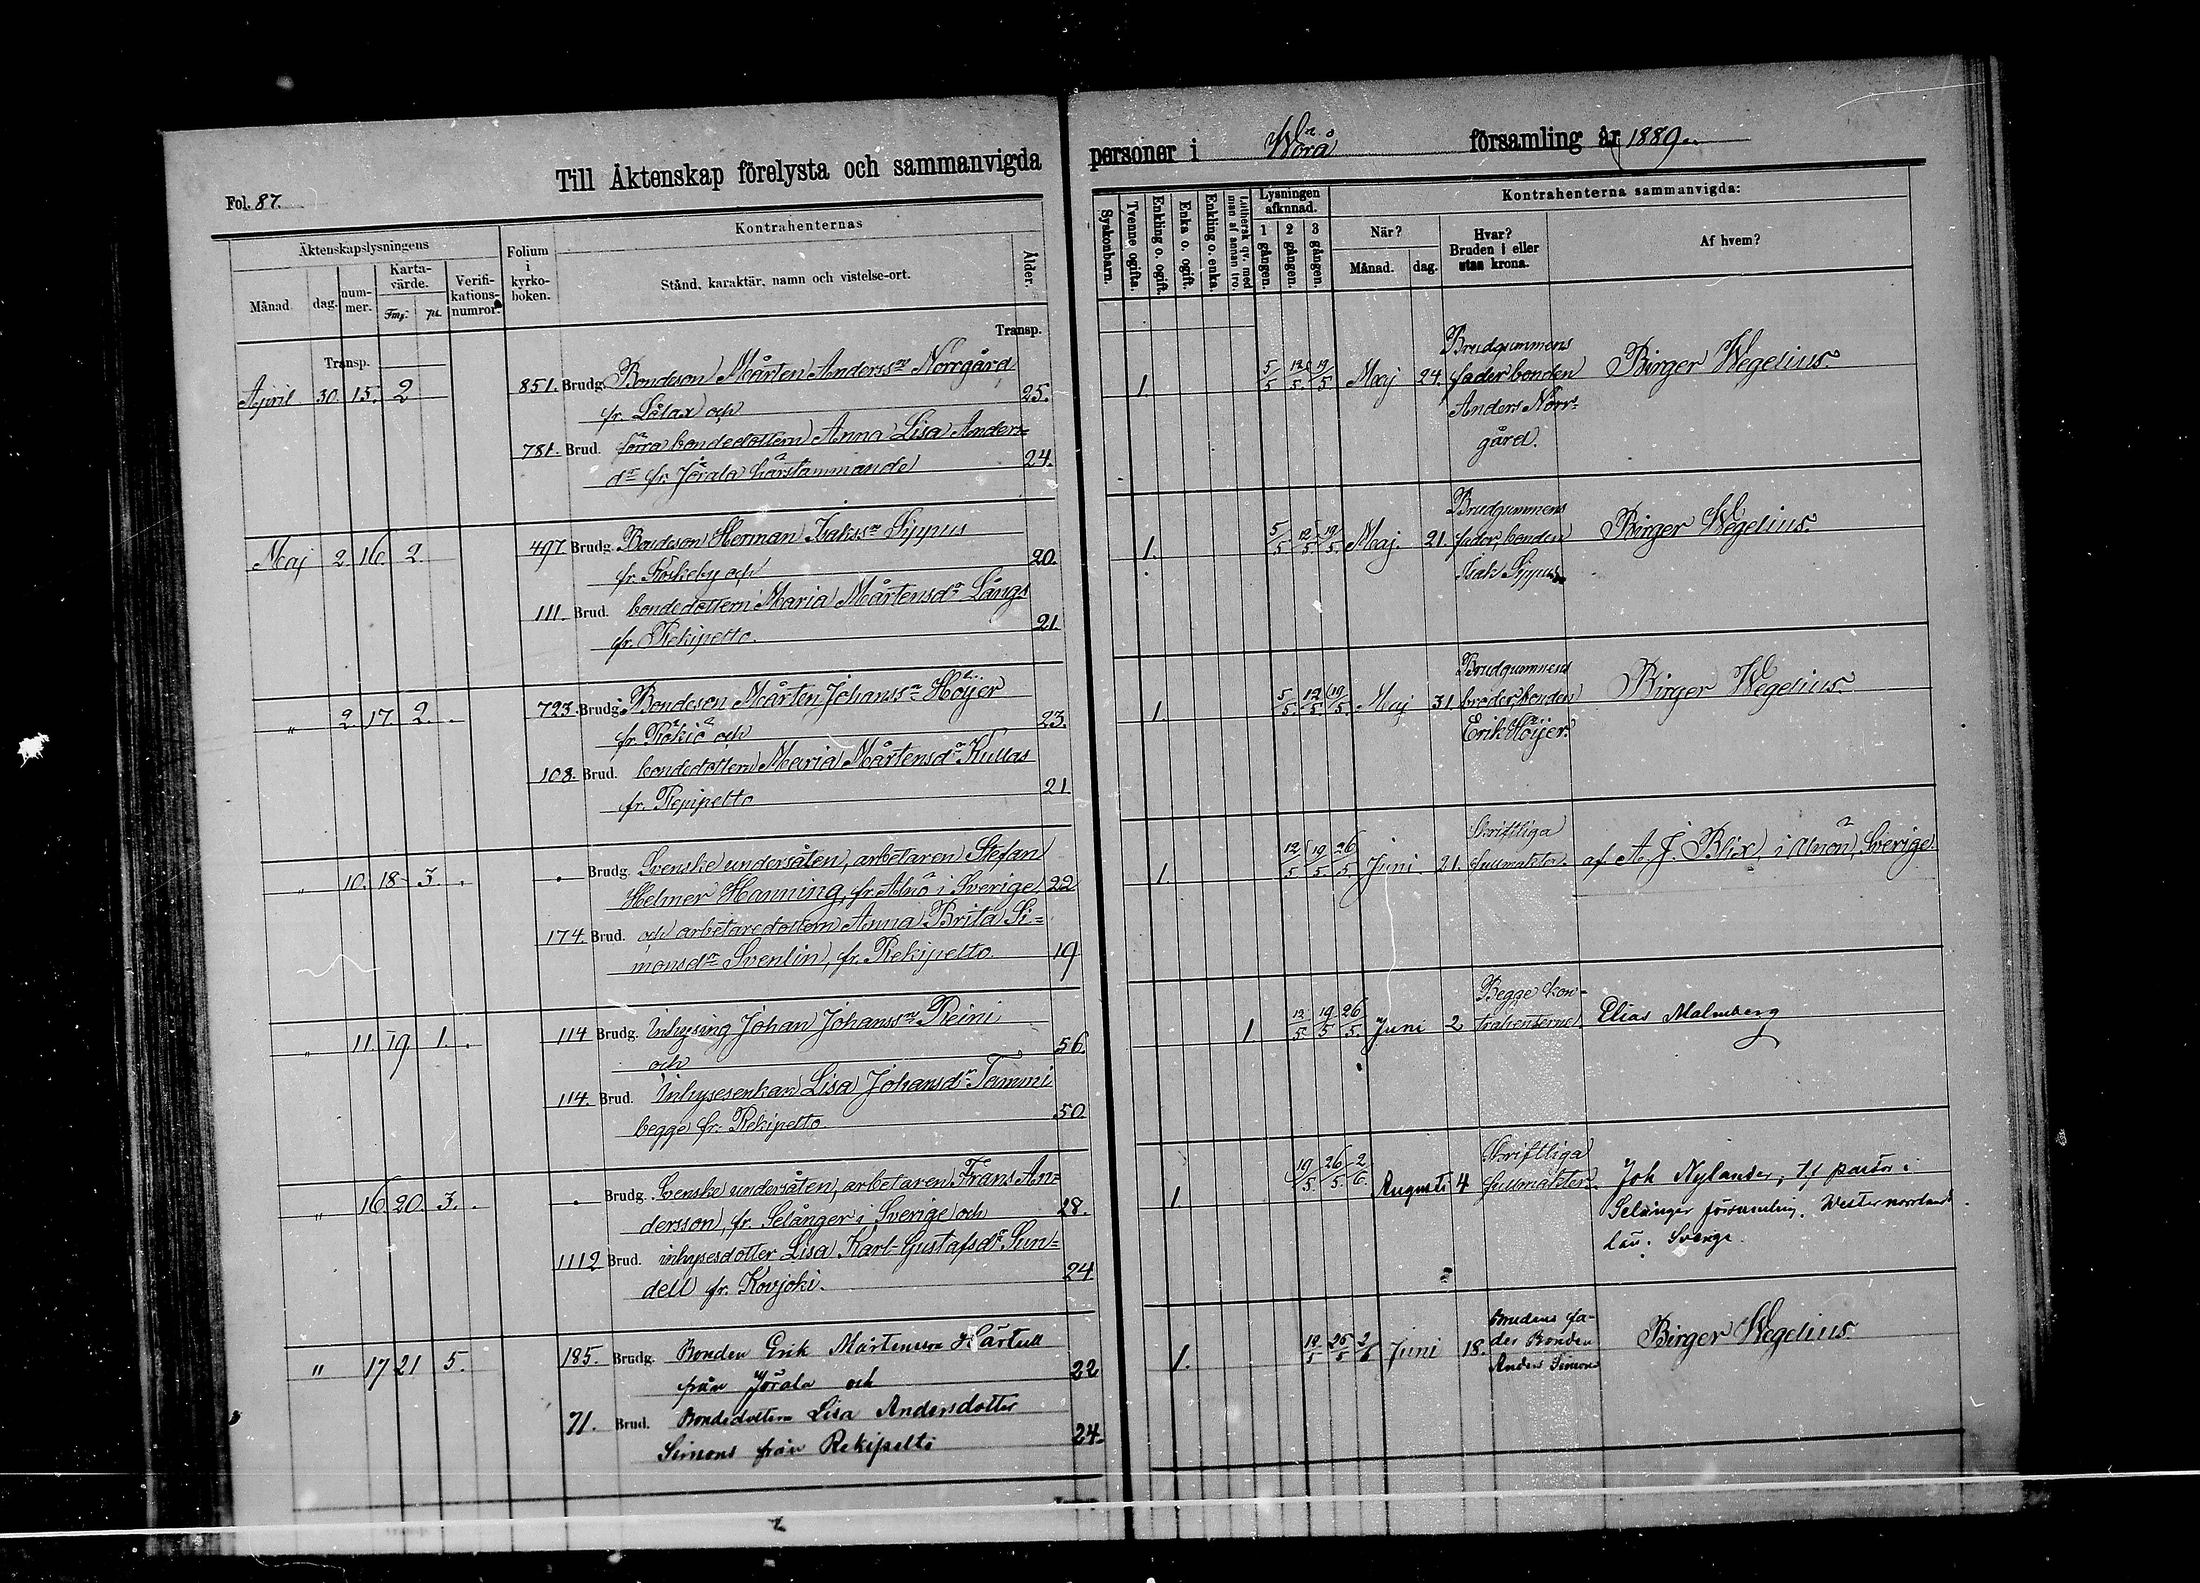 Till Äktenskap förelysta och sammanvigda
personer i Wörå församling år 1889.
Fol. 87.
Äktenskapslysningens
Månad
dag.
nummer.
Kartavärde.
Fmg.
pi.
Verifikationsnumror.
Folium i kyrkoboken.
Kontrahenternas
Stånd, karaktär, namn och vistelse-ort.
Ålder.
Syskonbarn.
Tvenne ogifta.
Enkling o. ogift.
Enka o. ogift.
Enkling o. enka.
Luthersk qv. med man af annan tro.
Lysningen afkunnad.
1 gången.
2 gången.
3 gången.
Kontrahenterna sammanvigda:
När?
Månad.
dag.
Hvar?
Bruden i eller
utan krona.
Af hvem?
Transp.
Transp.
April 30. 15. 2
851. Brudg. Bondeson Mårten Anderssn Norrgård
fr. Lålax och 25.
781. Brud. förra bondedottern Anna Lisa Anders=
dr fr. Jörala härstammande 24.
1. 5/5 12/5 19/5 Maj 24.
Brudgummens
fader bonden
Anders Norr=
gård.
Birger Wegelius.
Maj 2. 16. 2.
497 Brudg. Bondeson Herman Isakssn Sippus
fr. Koskeby och 20.
111. Brud. bondedottern Maria Mårtensdr Långs
fr. Rekipelto. 21.
1. 5/5 12/5 19/5 Maj. 21.
Brudgummens
fader, bonden
Isak Sippus
Birger Wegelius.
" 2. 17. 2.
723. Brudg. Bondeson Mårten Johanssn Höijer
fr. Rökiö och 23.
108. Brud. bondedottern Maria Mårtensdr Kullas
fr. Repipelto 21
1. 5/5 12/5 19/5 Maj 31
Brudgummens
broder, bonden
Erik Höijer.
Birger Wegelius.
" 10. 18 3.
Brudg. Svenske undersåten, arbetaren Stefan
Helmer Hanning, fr. Alnö i Sverige 22
174. Brud. och arbetaredottern Anna Brita Si=
monsdr Svenlin, fr. Rekipelto. 19
1. 12/5 19/5 26/5 Juni. 21.
Skriftliga
fullmakter.
af A. J. Blix, i Alnön, Sverige
" 11. 19. 1.
114 Brudg. Inhysing Johan Johanssn Reini
och 56.
114. Brud. Inhysesenkan Lisa Johansdr Tammi
begge fr. Rekipelto 50
1. 12/5 19/5 26/5 Juni 2
Begge kon-
trahenterne
Elias Malmberg
" 16 20. 3.
Brudg. Svenske undersåten, arbetaren Frans An=
dersson, fr. Selånger i Sverige och 28.
1112 Brud. inhysesdotter Lisa Karl-Gustafsdr Sun=
dell fr. Kovjoki. 24
1. 19/5 26/5 2/6 Augusti 4
Skriftliga
fullmakter.
Joh Nylander, t/f pastor i
Selånger församling. Westernorrlands
län. Sverige.
" 17 21 5.
185. Brudg. Bonden Erik Mårtensson Härtull
från Jörala och 22
71. Brud. Bondedottern Lisa Andersdotter
Simons från Rekipelto 24.
1. 19/5 26/5 2/6 Juni 18.
Brudens fa-
der Bonden
Anders Simons
Birger Wegelius.